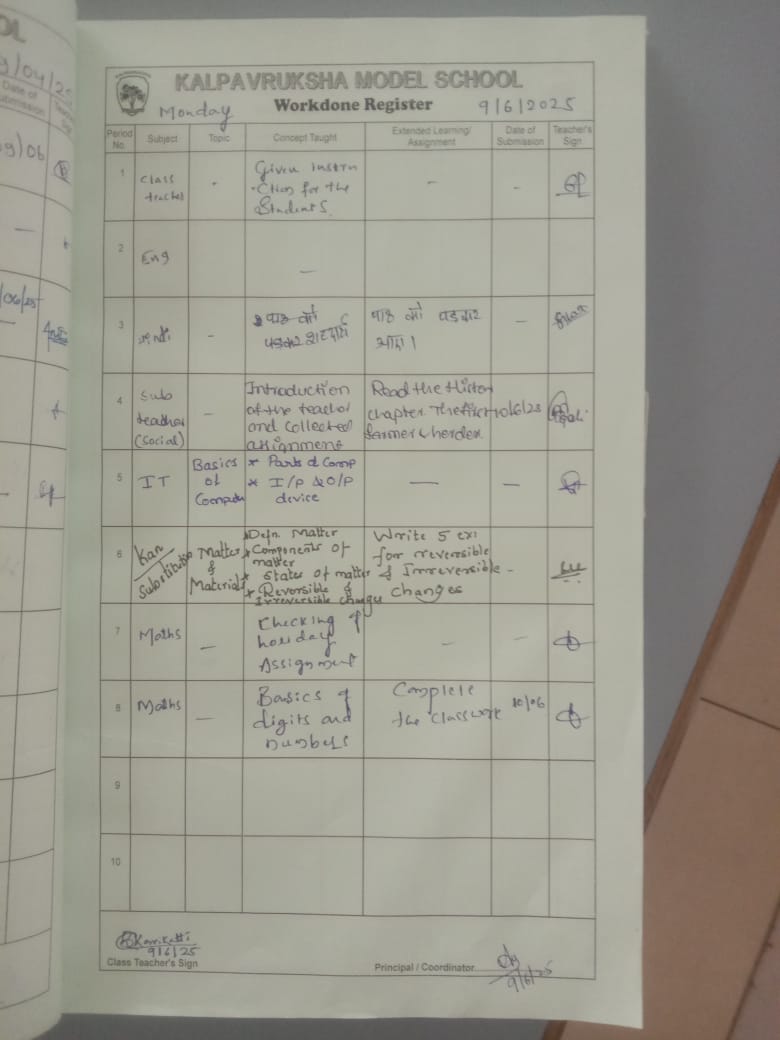 KALPAVRUKSHA MODEL SCHOOL
Monday
Workdone Register
9/6/2025
Period No. Subject Topic Concept Taught Extended Learning/ Assignment Date of Submission Teacher's Sign
1 Class teacher - Given Instru
-ction for the
Students. - -
2 Eng -
3 हिन्दी - पाठ को
पढ़कर शब्दार्थ
पाठ को पढ़कर
आना। -
4 Sub
teacher
(social) -
Introduction
of the teacher
and collected
assignment
Read the History
chapter The first 10/6/25
farmer & herder
5 IT
Basics
of
Computer
* Parts of Comp
* I/P & O/P
device
— —
6 Kan
Substitution
Matter
&
Materials
* Defn. Matter
* Components of
matter
* States of matter
* Reversible &
Irreversible changes
Write 5 ex:
for reversible
& Irreversible -
changes
7 Maths -
Checking of
holiday
Assignment
- -
8 Maths -
Basics of
digits and
numbers
Complete
the classwork
10/06
9
10
9/6/25
Class Teacher's Sign
Principal / Coordinator
9/6/25
Date of
Submission